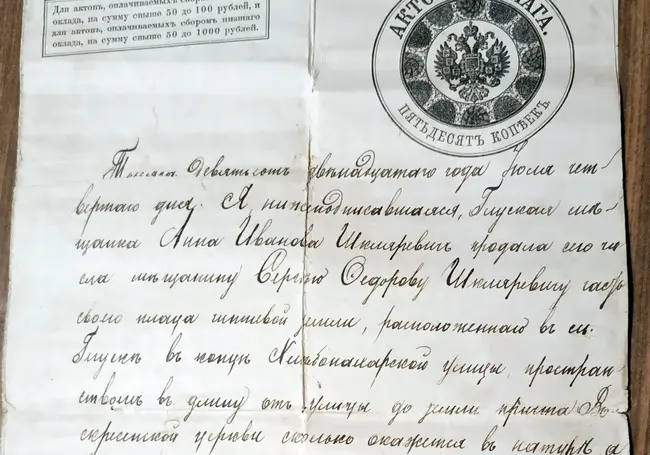 Для актовъ, оплачиваемыхъ сбор
оклада, на сумму свыше 50 до 100 рублей, и
для актовъ, оплачиваемыхъ сборомъ низшаго
оклада, на сумму свыше 50 до 1000 рублей.
АКТО АГА.
ПЯТЬДЕСЯТЪ КОПѢЕКЪ.
Тысяча девятьсотъ двѣнадцатаго года Іюля чет-
вертаго дня. Я, нижеподписавшаяся, Глуская мѣ-
щанка Анна Иванова Шкляревичъ продала сего чи-
сла мѣщанину Сергѣю Ѳедорову Шкляревичу часть
своего плаца чиншевой земли, расположеннаго въ м.
Глускѣ въ концѣ улицы, простран-
ствомъ въ длину отъ улицы до земли причта Во-
скресенской церкви сколько окажется въ натурѣ, а